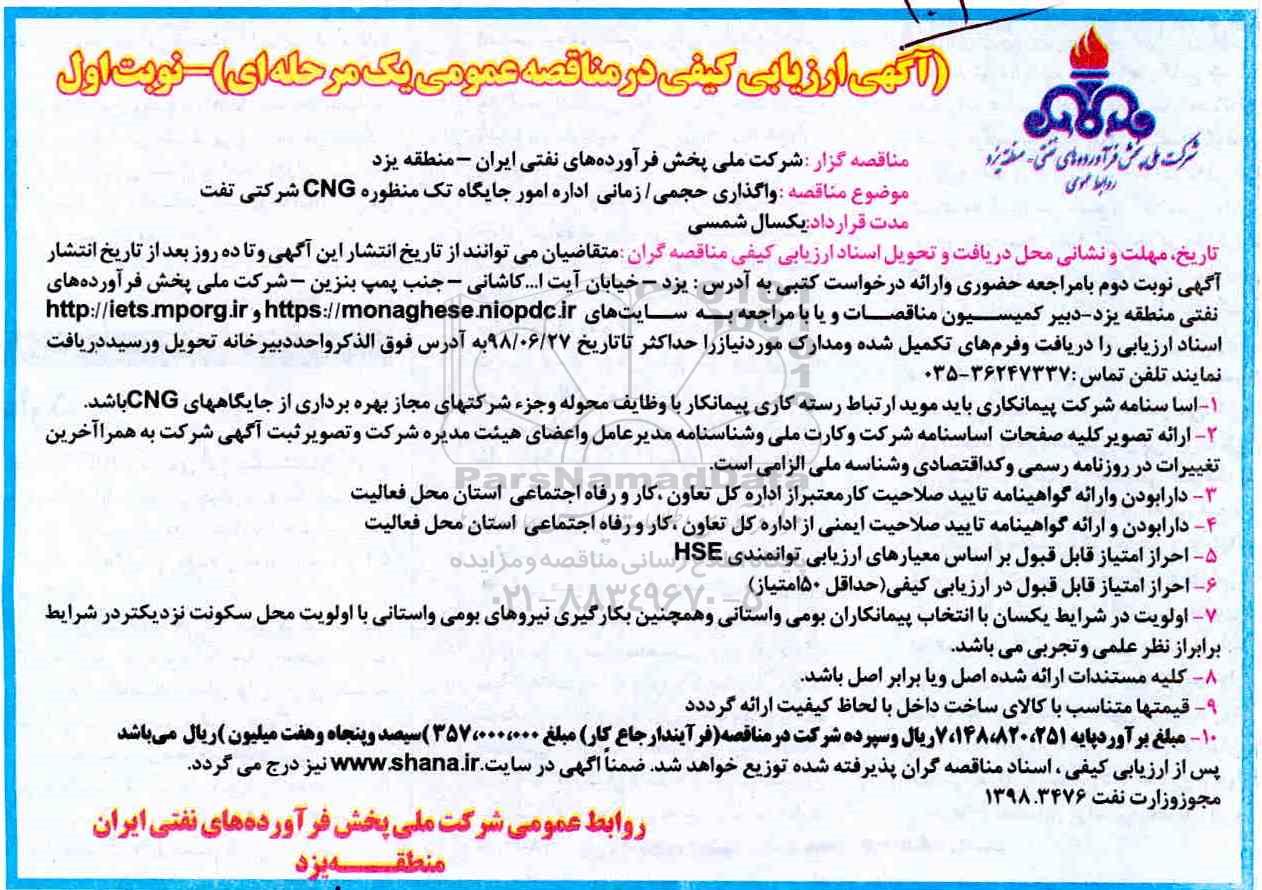 (آگهی ارزیابی کیفی در مناقصه عمومی یک مرحله ای)-نوبت اول
شرکت ملی پخش فرآورده‌های نفتی - منطقه یزد
روابط عمومی
مناقصه گزار :شرکت ملی پخش فرآورده‌های نفتی ایران -منطقه یزد
موضوع مناقصه :واگذاری حجمی/ زمانی اداره امور جایگاه تک منظوره CNG شرکتی تفت
مدت قرارداد:یکسال شمسی
تاریخ، مهلت و نشانی محل دریافت و تحویل اسناد ارزیابی کیفی مناقصه گران :متقاضیان می توانند از تاریخ انتشار این آگهی وتا ده روز بعد از تاریخ انتشار
آگهی نوبت دوم بامراجعه حضوری وارائه درخواست کتبی به آدرس : یزد -خیابان آیت ا...کاشانی -جنب پمپ بنزین -شرکت ملی پخش فرآورده‌های
نفتی منطقه یزد-دبیر کمیسیون مناقصات و یا با مراجعه به سایت‌های https://monaghese.niopdc.ir و http://iets.mporg.ir
اسناد ارزیابی را دریافت وفرم‌های تکمیل شده ومدارک موردنیازرا حداکثر تاتاریخ ۹۸/۰۶/۲۷به آدرس فوق الذکرواحددبیرخانه تحویل ورسیددریافت
نمایند تلفن تماس :۳۶۲۴۷۳۳۷-۰۳۵
۱-اسا سنامه شرکت پیمانکاری باید موید ارتباط رسته کاری پیمانکار با وظایف محوله وجزء شرکتهای مجاز بهره برداری از جایگاههای CNGباشد.
۲- ارائه تصویر کلیه صفحات اساسنامه شرکت وکارت ملی وشناسنامه مدیرعامل واعضای هیئت مدیره شرکت وتصویر ثبت آگهی شرکت به همراآخرین
تغییرات در روزنامه رسمی وکداقتصادی وشناسه ملی الزامی است.
۳- دارابودن وارائه گواهینامه تایید صلاحیت کارمعتبراز اداره کل تعاون ،کار و رفاه اجتماعی استان محل فعالیت
۴- دارابودن و ارائه گواهینامه تایید صلاحیت ایمنی از اداره کل تعاون ،کار و رفاه اجتماعی استان محل فعالیت
۵- احراز امتیاز قابل قبول بر اساس معیارهای ارزیابی توانمندی HSE
۶- احراز امتیاز قابل قبول در ارزیابی کیفی(حداقل ۵۰امتیاز)
۷- اولویت در شرایط یکسان با انتخاب پیمانکاران بومی واستانی وهمچنین بکارگیری نیروهای بومی واستانی با اولویت محل سکونت نزدیکتردر شرایط
برابراز نظر علمی وتجربی می باشد.
۸- کلیه مستندات ارائه شده اصل ویا برابر اصل باشد.
۹- قیمتها متناسب با کالای ساخت داخل با لحاظ کیفیت ارائه گرددد
۱۰- مبلغ برآوردپایه ۷،۱۴۸،۸۲۰،۲۵۱ریال وسپرده شرکت درمناقصه(فرآیندارجاع کار) مبلغ ۳۵۷،۰۰۰،۰۰۰(سیصد وپنجاه وهفت میلیون )ریال می‌باشد
پس از ارزیابی کیفی ، اسناد مناقصه گران پذیرفته شده توزیع خواهد شد. ضمناً آگهی در سایت.www.shana.ir نیز درج می گردد.
مجوزوزارت نفت ۱۳۹۸.۳۴۷۶
روابط عمومی شرکت ملی پخش فرآورده‌های نفتی ایران
منطقه یزد
ParsNamadData
پایگاه اطلاع رسانی مناقصه و مزایده
۰۲۱-۸۸۳۴۹۶۷۰-۵